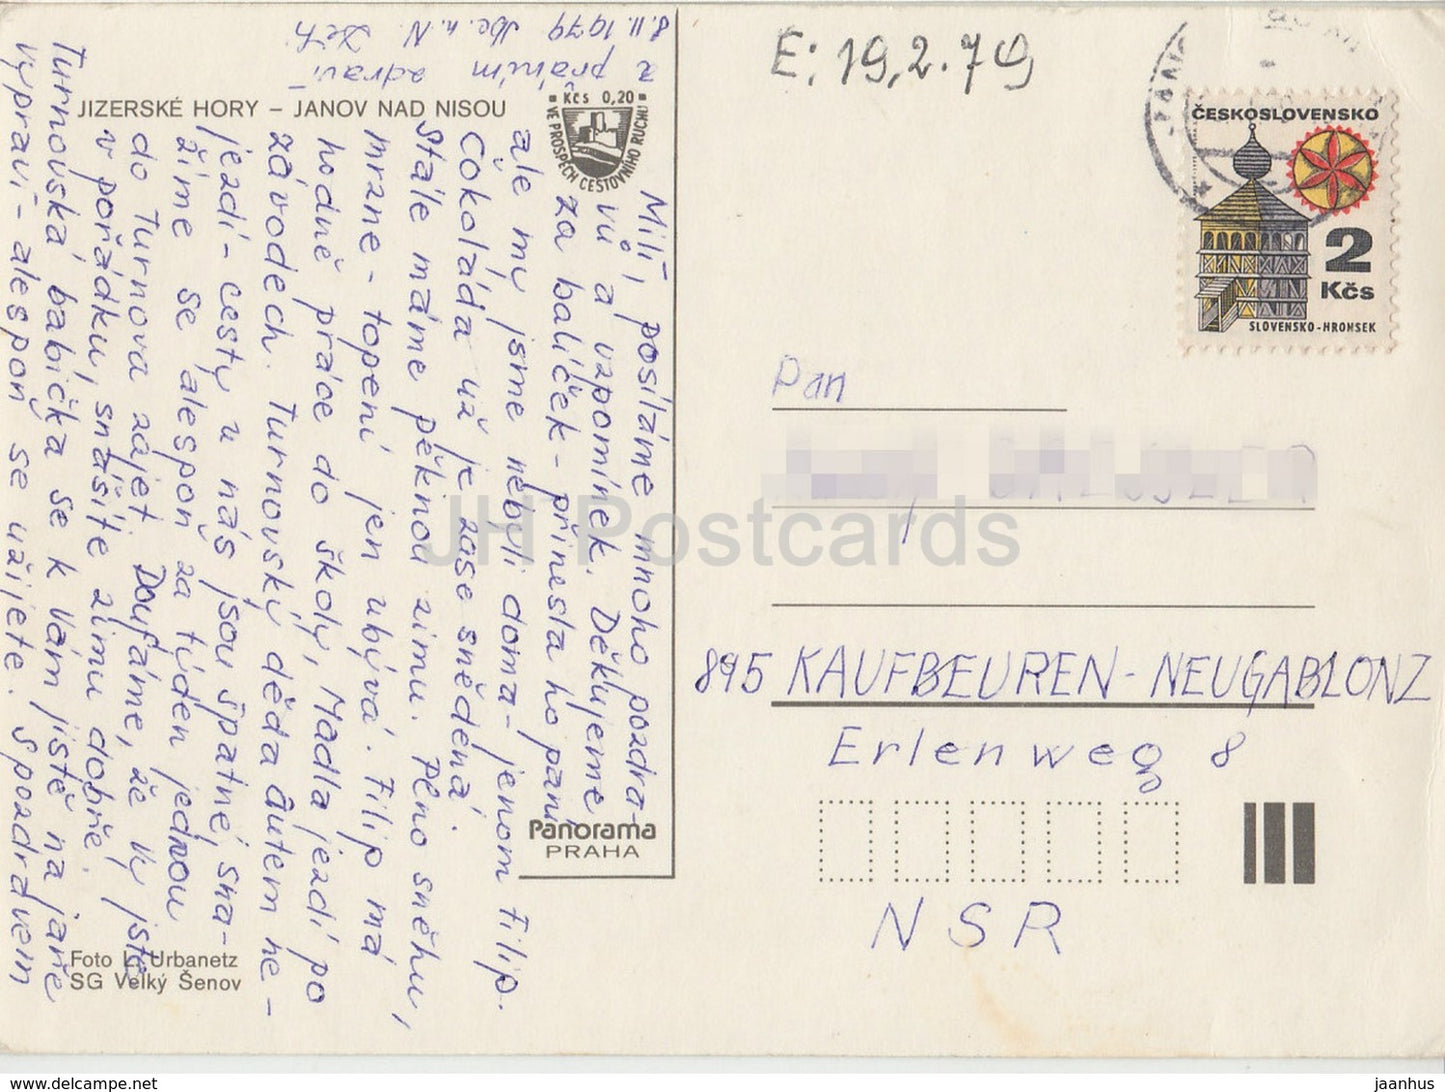 JIZERSKÉ HORY – JANOV NAD NISOU
Kčs 0,20
VE PROSPĚCH CESTOVNÍHO RUCHU
Milí, posíláme mnoho pozdra-
vů a vzpomínek. Děkujeme
za balíček - přinesla ho paní
ale my jsme nebyli doma - jenom Filip.
Čokoláda už je zase snědená.
Stále máme pěknou zimu. Plno sněhu,
mrzne - topení jen ubývá. Filip má
hodně práce do školy, Madla jezdí po
závodech. Turnovský děda autem ne-
jezdí - cesty u nás jsou špatné, sna-
žíme se alespoň za týden jednou
do Turnova zajet. Doufáme, že Vy jste
v pořádku, snášíte zimu dobře.
Turnovská babička se k Vám jistě na jaře
vypraví - alespoň se užijete. S pozdravem
a přáním zdraví
8.II.1979 Jbc. n. N.
Panorama
PRAHA
Foto L. Urbanetz
SG Velký Šenov
E: 19.2.79
ČESKOSLOVENSKO
2
Kčs
SLOVENSKO-HRONSEK
Pan
895 KAUFBEUREN - NEUGABLONZ
Erlenweg 8
NSR
JH Postcards
https://www.delcampe.net
jaanhus